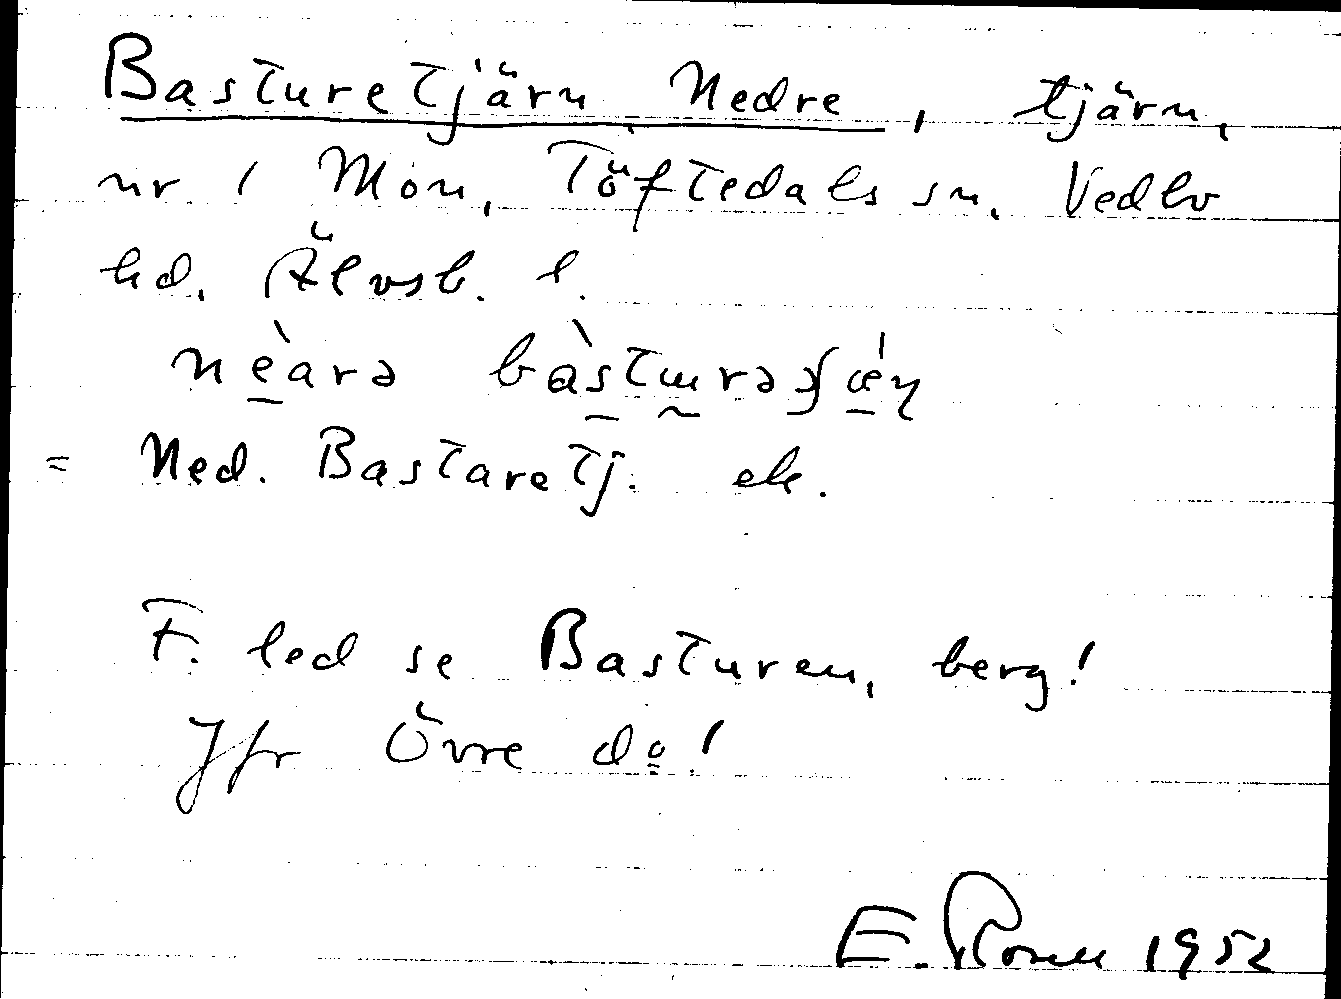 Basturetjärn Nedre, tjärn,
nr 1 Mon, Töftedals sn. Vedbo
hd. Älvsb. l.
= Ned. Bastaretj. ek.
F. led se Basturen, berg!
Jfr Övre do!
E. 1952